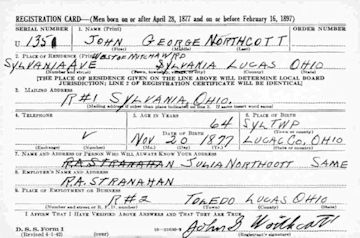 REGISTRATION CARD—(Men born on or after April 28, 1877 and on or before February 16, 1897)
SERIAL NUMBER 1. NAME (Print) ORDER NUMBER
U 1351 JOHN GEORGE NORTHCOTT
(First) (Middle) (Last)
2. PLACE OF RESIDENCE (Print) WEST OF MITCHAW RD
SYLVANIA AVE SYLVANIA LUCAS OHIO
(Number and street) (Town, township, village, or city) (County) (State)
[THE PLACE OF RESIDENCE GIVEN ON THE LINE ABOVE WILL DETERMINE LOCAL BOARD
JURISDICTION; LINE 2 OF REGISTRATION CERTIFICATE WILL BE IDENTICAL]
3. MAILING ADDRESS
R#1 SYLVANIA, OHIO.
[Mailing address if other than place indicated on line 2. If same insert word same]
4. TELEPHONE 5. AGE IN YEARS 6. PLACE OF BIRTH
64 SYL TWP
DATE OF BIRTH (Town or county)
V NOV 20 1877 LUCAS CO, OHIO
(Exchange) (Number) (Mo.) (Day) (Yr.) (State or country)
7. NAME AND ADDRESS OF PERSON WHO WILL ALWAYS KNOW YOUR ADDRESS
RA STRANAHAN JULIA NORTHCOTT SAME
8. EMPLOYER'S NAME AND ADDRESS
R.A. STRANAHAN
9. PLACE OF EMPLOYMENT OR BUSINESS
R#2 TOLEDO LUCAS OHIO
(Number and street or R. F. D. number) (Town) (County) (State)
I AFFIRM THAT I HAVE VERIFIED ABOVE ANSWERS AND THAT THEY ARE TRUE.
D. S. S. Form 1
(Revised 4-1-42) (over) John G. Northcott